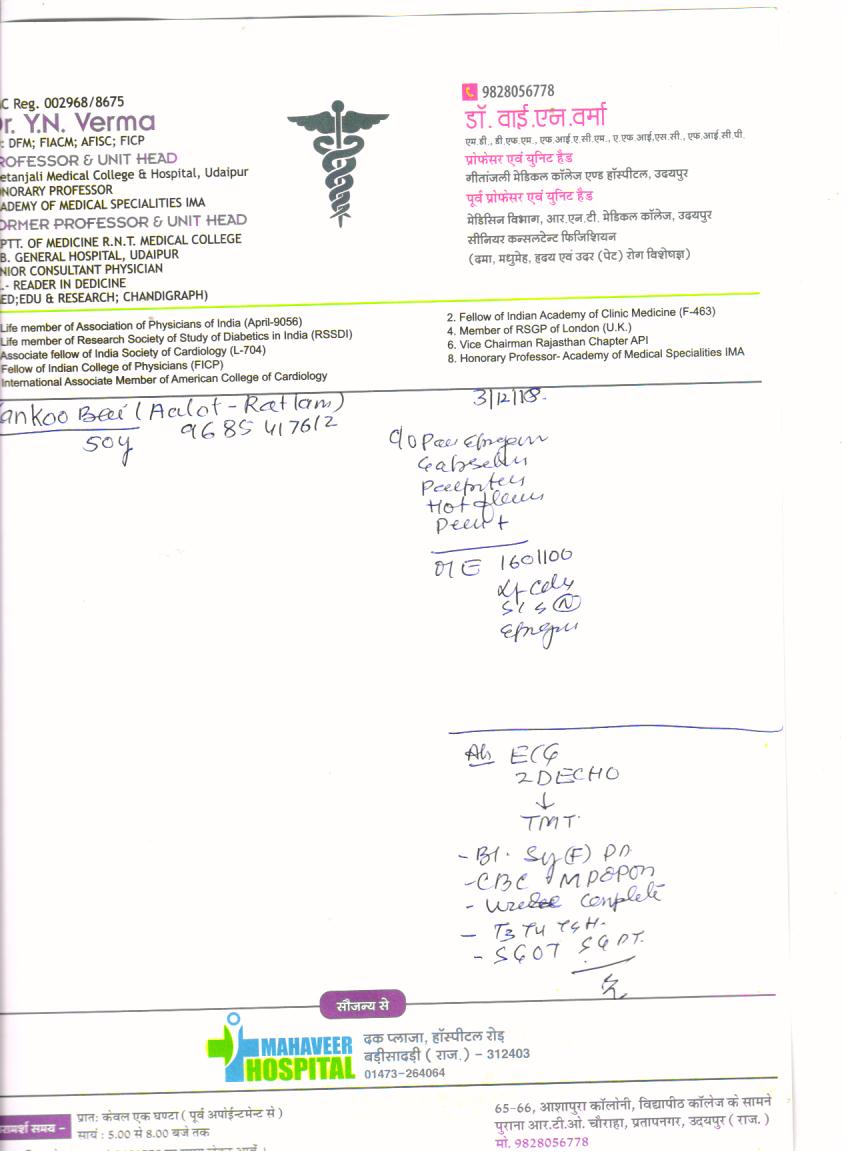 C Reg. 002968/8675
r. Y.N. Verma
: DFM; FIACM; AFISC; FICP
ROFESSOR & UNIT HEAD
etanjali Medical College & Hospital, Udaipur
NORARY PROFESSOR
ADEMY OF MEDICAL SPECIALITIES IMA
ORMER PROFESSOR & UNIT HEAD
PTT. OF MEDICINE R.N.T. MEDICAL COLLEGE
B. GENERAL HOSPITAL, UDAIPUR
NIOR CONSULTANT PHYSICIAN
.- READER IN DEDICINE
ED;EDU & RESEARCH; CHANDIGRAPH)
9828056778
डॉ. वाई.एन.वर्मा
एम.डी., डी.एफ.एम., एफ.आई.ए.सी.एम., ए.एफ.आई.एस.सी., एफ.आई.सी.पी.
प्रोफेसर एवं युनिट हैड
गीतांजली मेडिकल कॉलेज एण्ड हॉस्पीटल, उदयपुर
पूर्व प्रोफेसर एवं युनिट हैड
मेडिसिन विभाग, आर.एन.टी. मेडिकल कॉलेज, उदयपुर
सीनियर कन्सलटेन्ट फिजिशियन
(दमा, मधुमेह, हृदय एवं उदर (पेट) रोग विशेषज्ञ)
Life member of Association of Physicians of India (April-9056)
Life member of Research Society of Study of Diabetics in India (RSSDI)
Associate fellow of India Society of Cardiology (L-704)
Fellow of Indian College of Physicians (FICP)
International Associate Member of American College of Cardiology
2. Fellow of Indian Academy of Clinic Medicine (F-463)
4. Member of RSGP of London (U.K.)
6. Vice Chairman Rajasthan Chapter API
8. Honorary Professor- Academy of Medical Specialities IMA
ankoo Bai (Aalot - Ratlam)
9685417612
50y
3/12/18.
C/o
Hot
O/E 160/100
S1S2 N
ECG
2DECHO
↓
TMT.
- Bl. (F)
- CBC
- complete
- T3 T4 TSH.
- SGOT SGPT.
सौजन्य से
MAHAVEER
HOSPITAL
दक प्लाजा, हॉस्पीटल रोड़
बड़ीसादड़ी ( राज.) – 312403
01473-264064
रामर्श समय –
प्रातः केवल एक घण्टा ( पूर्व अपोईन्टमेन्ट से )
सायं : 5.00 से 8.00 बजे तक
65-66, आशापुरा कॉलोनी, विद्यापीठ कॉलेज के सामने
पुराना आर.टी.ओ. चौराहा, प्रतापनगर, उदयपुर ( राज. )
मो. 9828056778